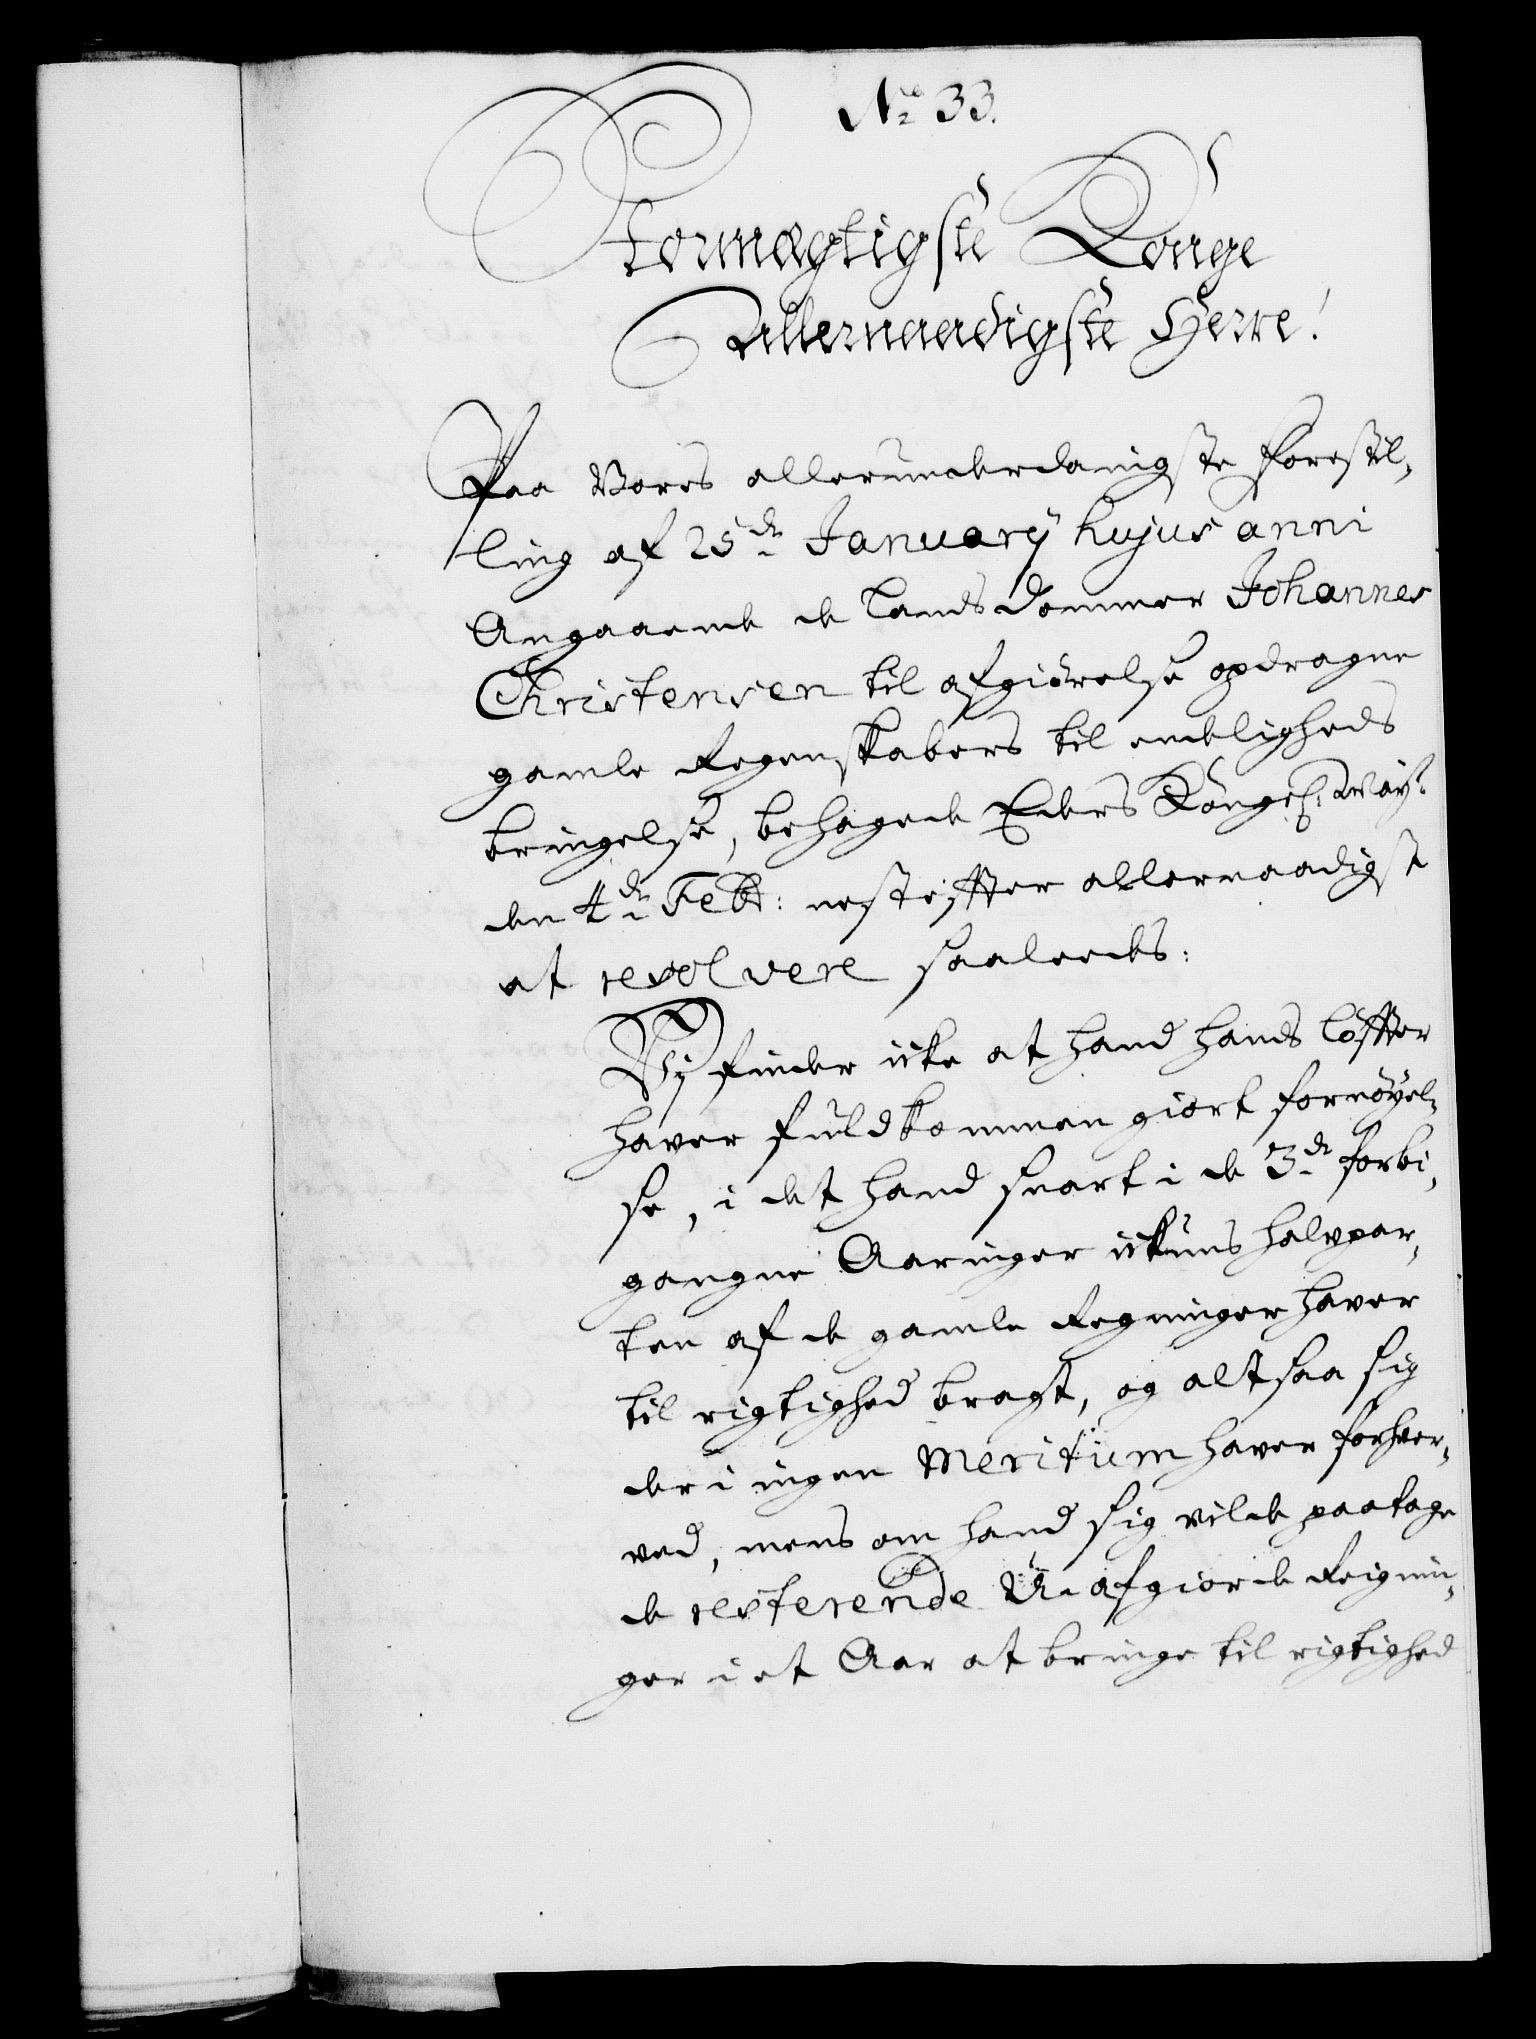 No 33.
Stormægtigste Konge
Allernaadigste Herre!
Paa Vores allerunderdanigste forestil,
ling af 25de January hujus anni
Angaaende de Landsdommer Johannes
Christensen til afgiørelse opdragne
gamle Regenskabers til endeligheds
bringelse, behagede Eders Kongel: May:
den 4de Febr: nest efter allernaadigst
at resolvere saaleedes:
Vj finder icke at hand hands løffter
haver fuldkommen giort fornøyel,
se, i det hand snart i de 3de forbi,
gangne Aaringer ickuns halvpar,
ten af de gamle Regninger haver
til rigtighed bragt, og altsaa sig
der i ingen Meritum haver forhver,
ved, mens om hand sig vilde paatage
de resterende U-afgiorde Reignin,
ger i et Aar at bringe til rigtighed